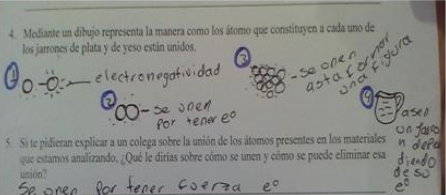 4. Mediante un dibujo representa la manera como los átomo que constituyen a cada uno de
los jarrones de plata y de yeso están unidos.
1
electronegatividad
2
se unen
por tener e°
3
se onen
asta formar
una figura
4
asen
un jarro
n depen
diendo
de so
e°
5. Si te pidieran explicar a un colega sobre la unión de los átomos presentes en los materiales
que estamos analizando, ¿Qué le dirías sobre cómo se unen y cómo se puede eliminar esa
unión?
Se onen Por tener fuerza e°